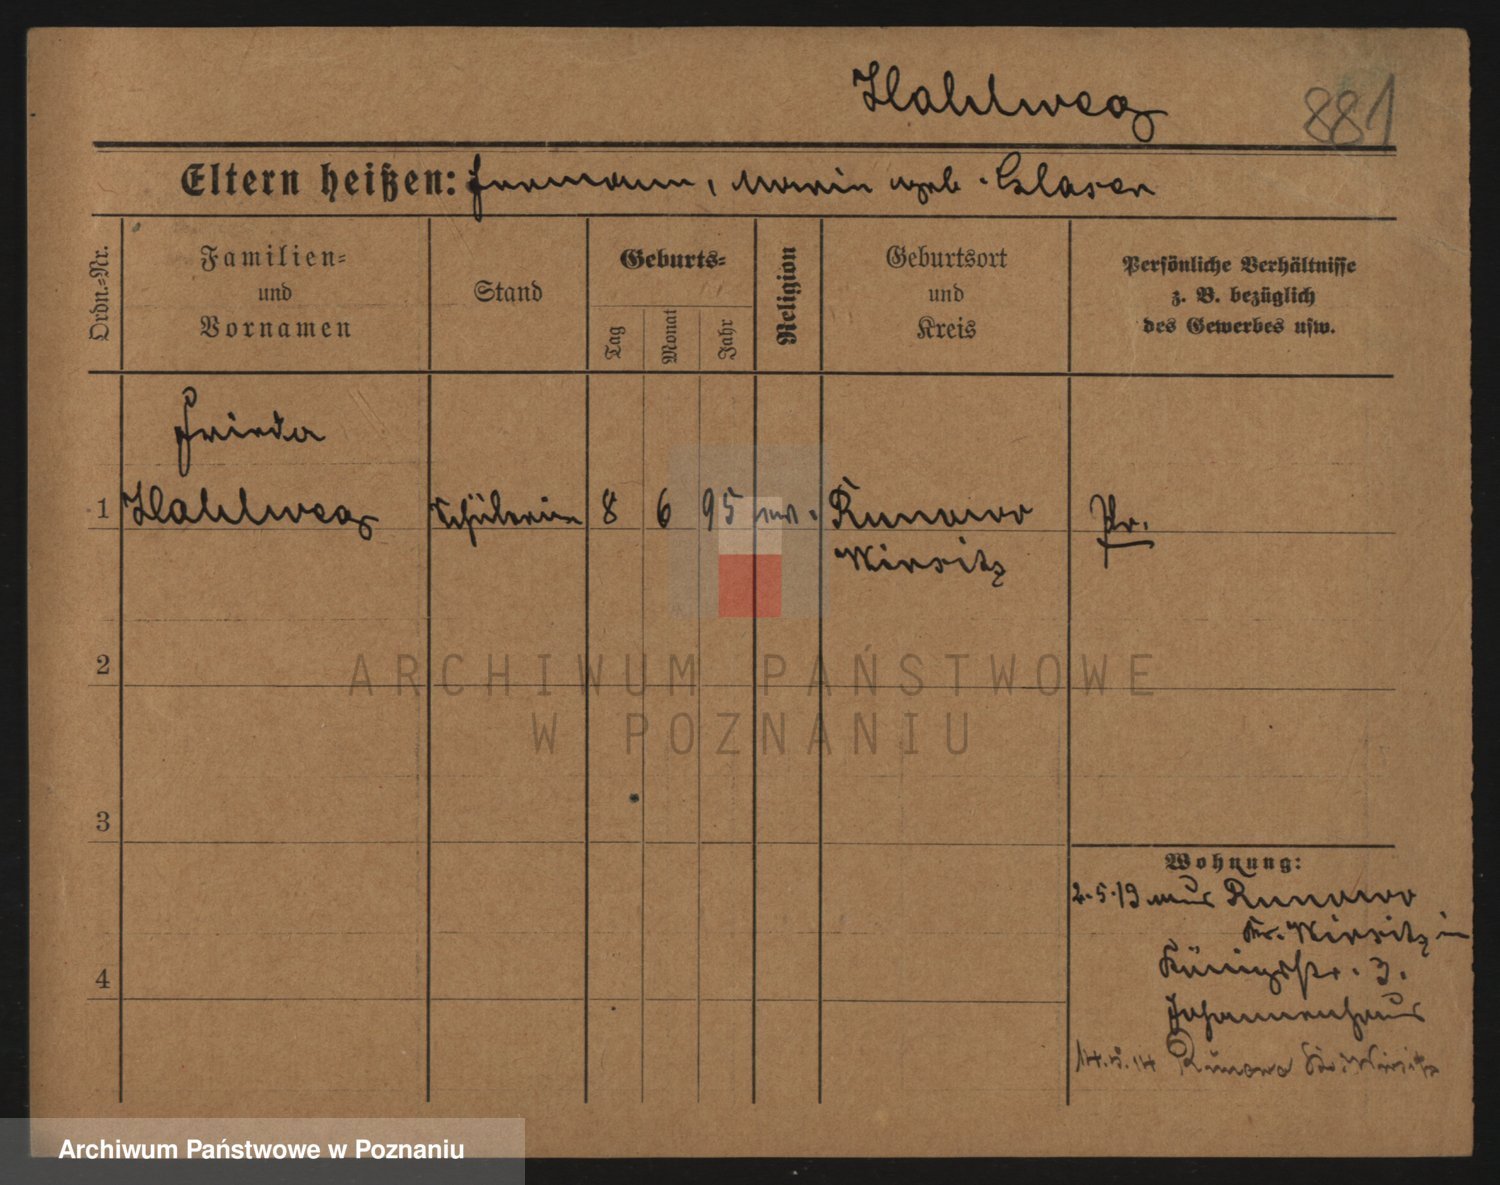 Hahlweg
881
Eltern heißen: Hermann, Marie geb. Glaser
Ordn.-Nr.
Familien-
und
Vornamen
Stand
Geburts-
Tag
Monat
Jahr
Religion
Geburtsort
und
Kreis
Persönliche Verhältnisse
z. B. bezüglich
des Gewerbes usw.
Frieda
1 Hahlweg Schülerin 8 6 95 ev. Runowo Pr.
Wirsitz
ARCHIWUM PAŃSTWOWE
W POZNANIU
2
3
4
Wohnung:
2.5.13 aus Runowo
Kr. Wirsitz in
Königstr. 3.
Johannenhaus
14.5.14 Runowo Kr. Wirsitz
Archiwum Państwowe w Poznaniu